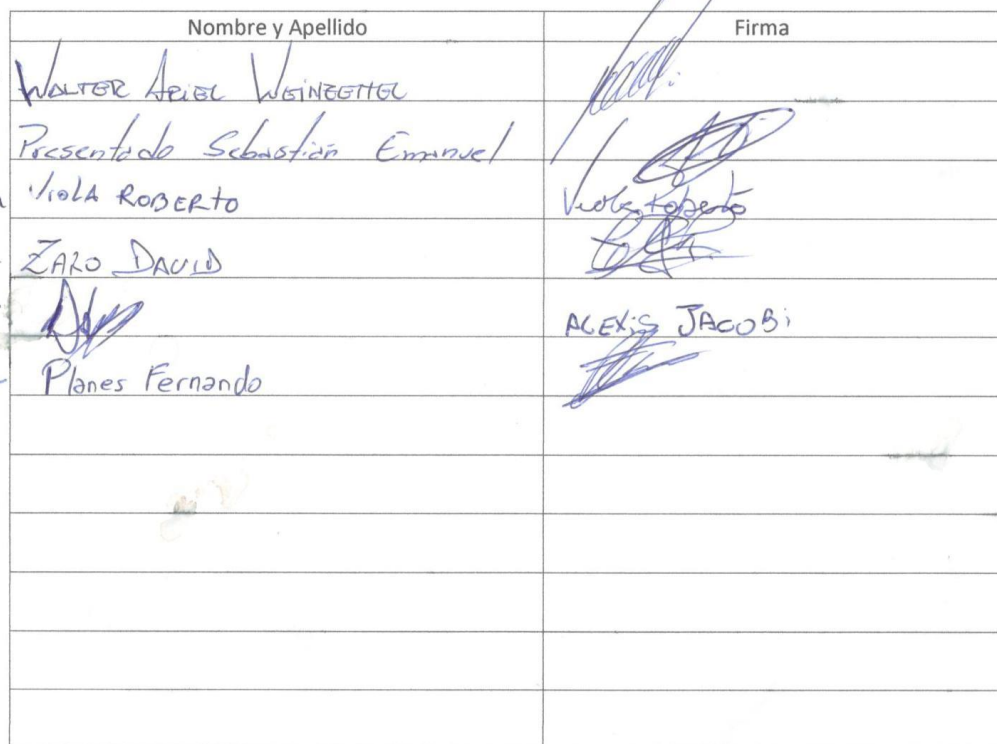 Nombre y Apellido Firma
WALTER ARIEL WEINZETTEL
Presentado Sebastián Emanuel
Viola ROBERTO Viola Roberto
ZARO DAVID
ALEXIS JACOBi
Planes Fernando